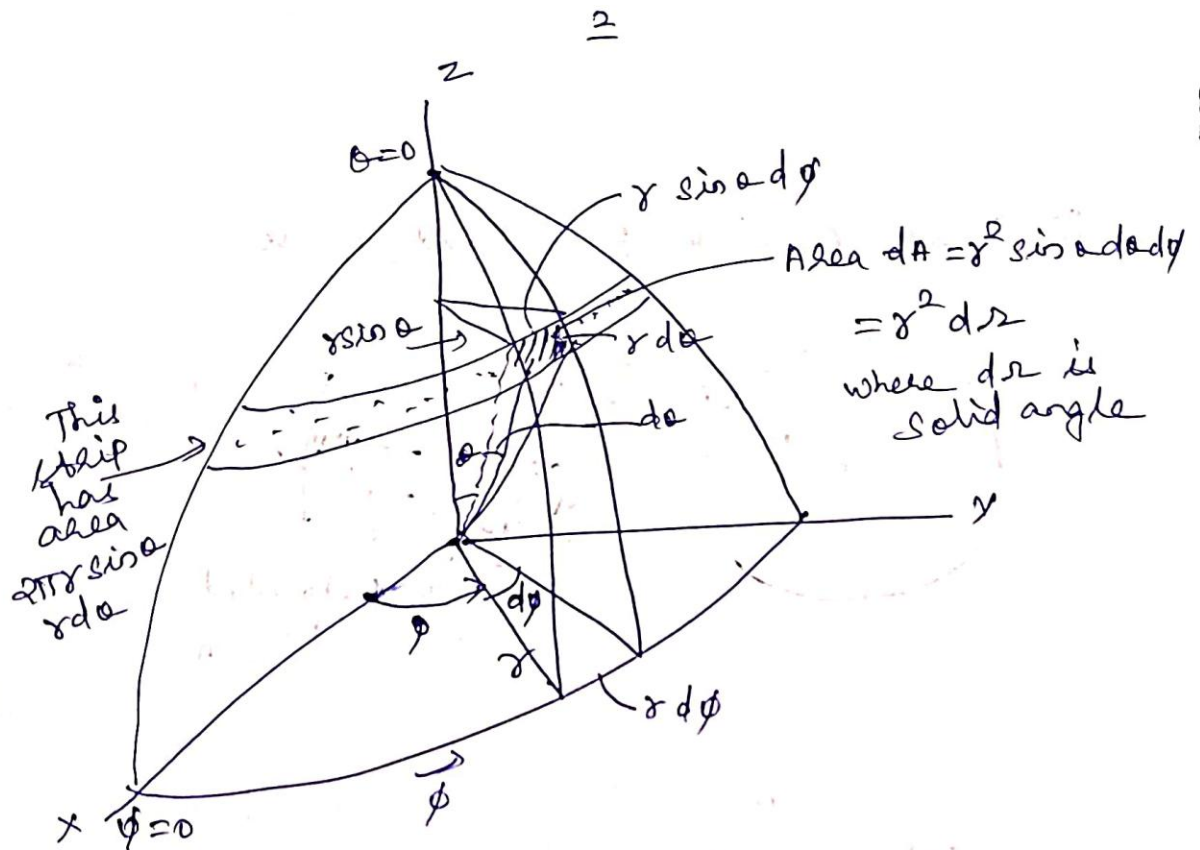 2
Z
θ=0
r sinθ dφ
Area dA = r² sinθ dθ dφ
= r² dΩ
where dΩ is
solid angle
r sinθ
r dθ
This
strip
has
area
2πr sinθ
r dθ
θ
dθ
Y
φ
dφ
r
r dφ
φ
X φ=0